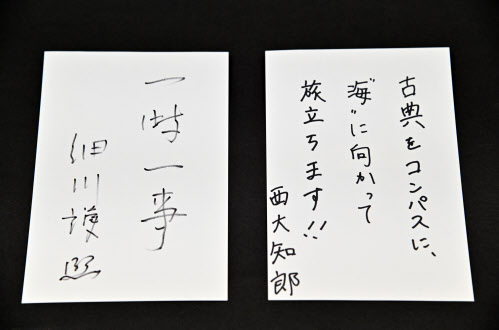 一時一事
細川護熙
古典をコンパスに、
"海"に向かって
旅立ちます!!
西大知郎